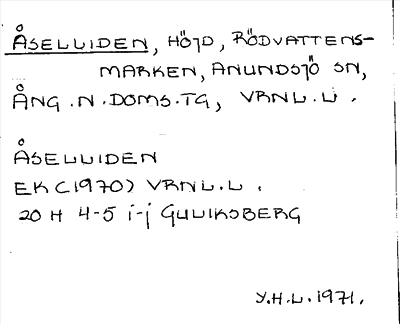 ÅSELLIDEN, HÖJD, RÖDVATTENS-
MARKEN, ANUNDSJÖ SN,
ÅNG.N.DOMS.TG, VRNL.L.
ÅSELLIDEN
EK(1970) VRNL.L.
20 H 4-5 i-j GULIKSBERG
Y.H.L.1971.